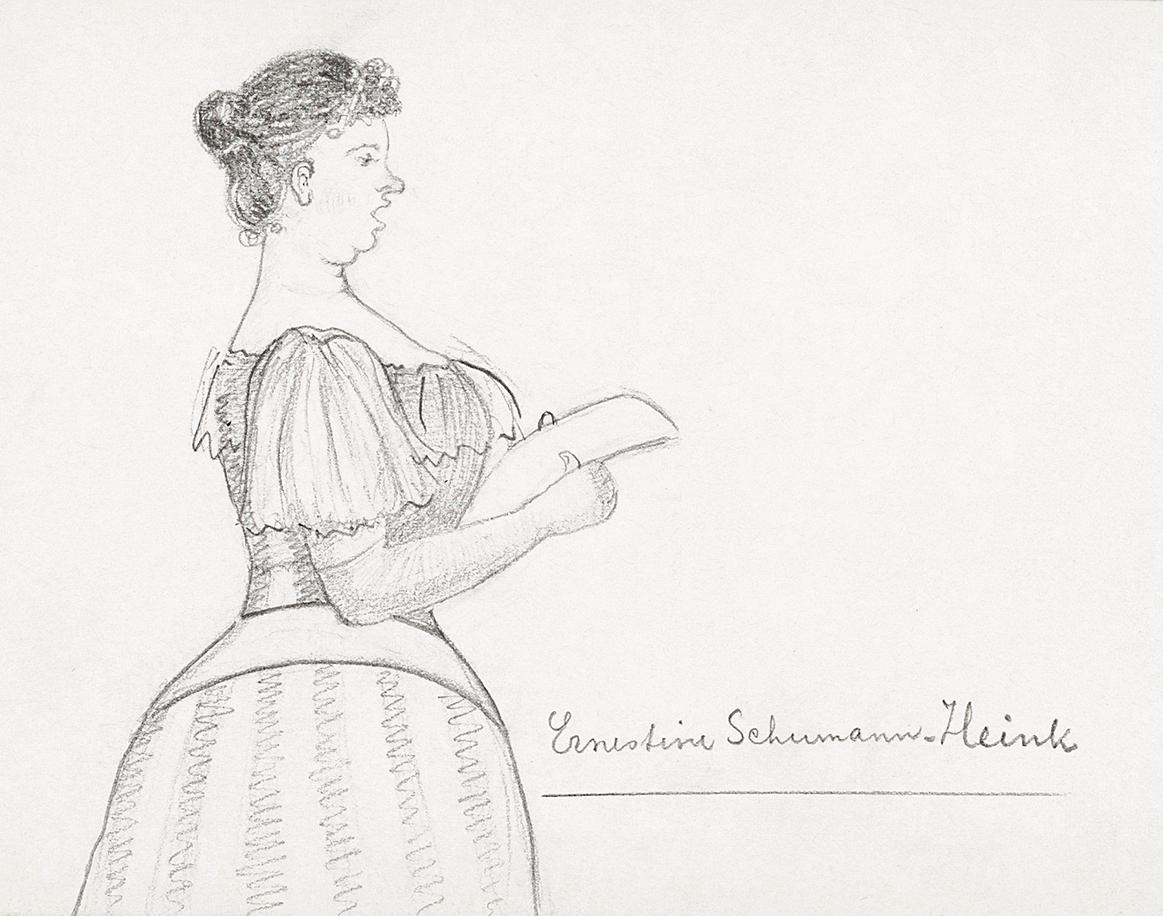 Ernestine Schumann-Heink